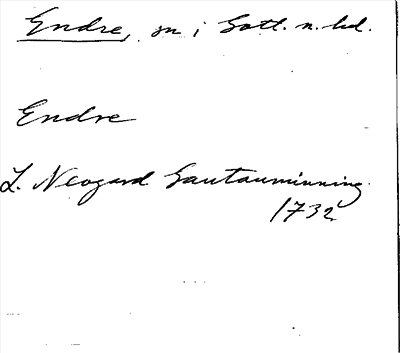 Endre, sn i Gotl. n. hd.
Endre
L. Neogard Gautauminning
1732